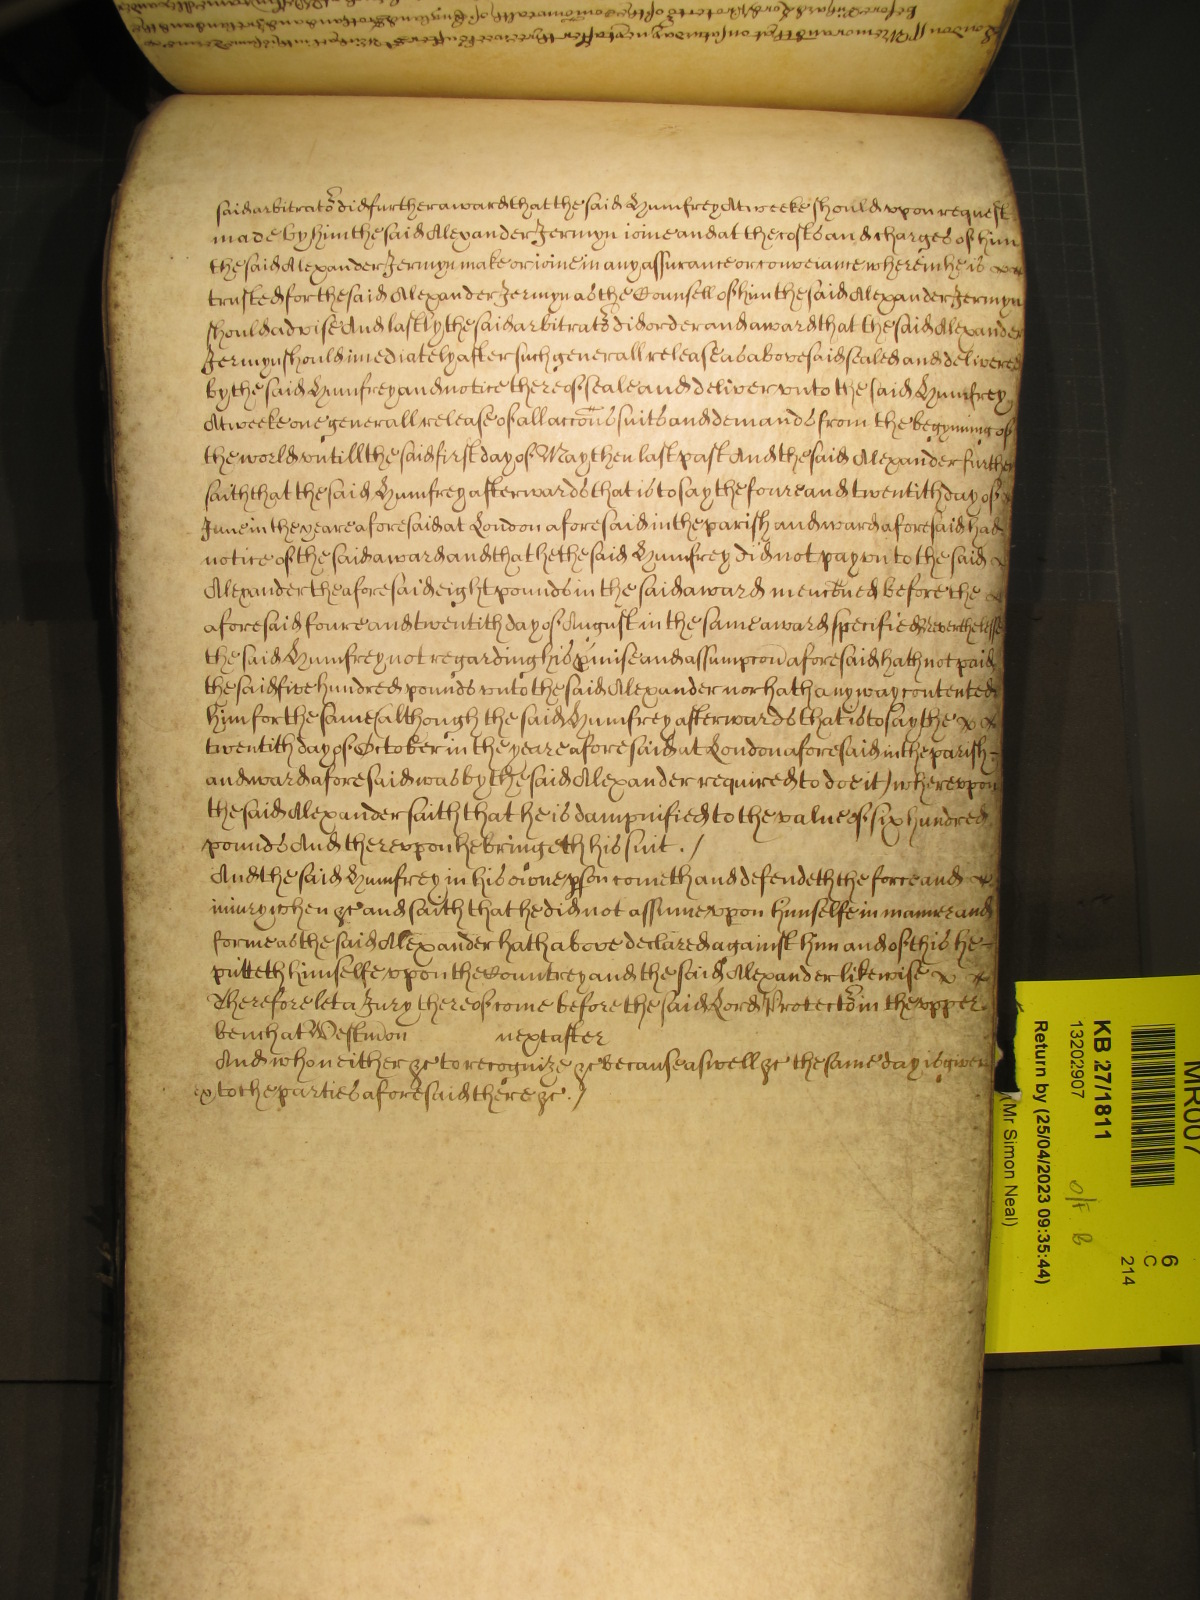 said arbitratōs did further award that the said Humfrey Atweeke should vpon request
made by him the said Alexander Jermyn ioine and at the costs and charges of him
the said Alexander Jermyn make or ioine in any assurance or conveiance wherein he is
trusted for the said Alexander Jermyn as the Counsell of him the said Alexander Jermyn
should advise And lastly the said arbitratōs did order and award that the said Alexander
Jermyn should imediately after such generall release as abovesaid sealed and delivered
by the said Humfrey and notice thereof seale and deliver vnto the said Humfrey
Atweeke one generall release of all accōns suits and demands from the begynning of
the world vntill the said first day of May then last past And the said Alexander further
saith that the said Humfrey afterwards that is to say the foure and twentith day of
June in the yeare aforesaid at London aforesaid in the parish and ward aforesaid had
notice of the said award and that he the said Humfrey did not pay vnto the said
Alexander the aforesaid eight pounds in the said award mencōned before the
aforesaid foure and twentith day of August in the same award specified Neverthelesse
the said Humfrey not regarding his pmise and assumpcōn aforesaid hath not paid
the said five hundred pounds vnto the said Alexander nor hath any way contented
him for the same (although the said Humfrey afterwards that is to say the
twentith day of October in the yeare aforesaid at London aforesaid in the parish
and ward aforesaid was by the said Alexander required to doe it) wherevpon
the said Alexander saith that he is dampnified to the value of six hundred
pounds And therevpon he bringeth his suit ./
And the said Humfrey in his owne pson cometh and defendeth the force and
iniury when &c and saith that he did not assume vpon himselfe in manner and
forme as the said Alexander hath above declared against him and of this he
putteth himselfe vpon the Countrey and the said Alexander likewise
Therefore let a Jury thereof come before the said Lord Protectōr in the vpper
bench at Westmōn next after
And who neither &c to recognize &c because aswell &c the same day is given
to the parties aforesaid there &c ./
MR007
KB 27/1811
13202907
Return by (25/04/2023 09:35:44)
(Mr Simon Neal)
6
C
214